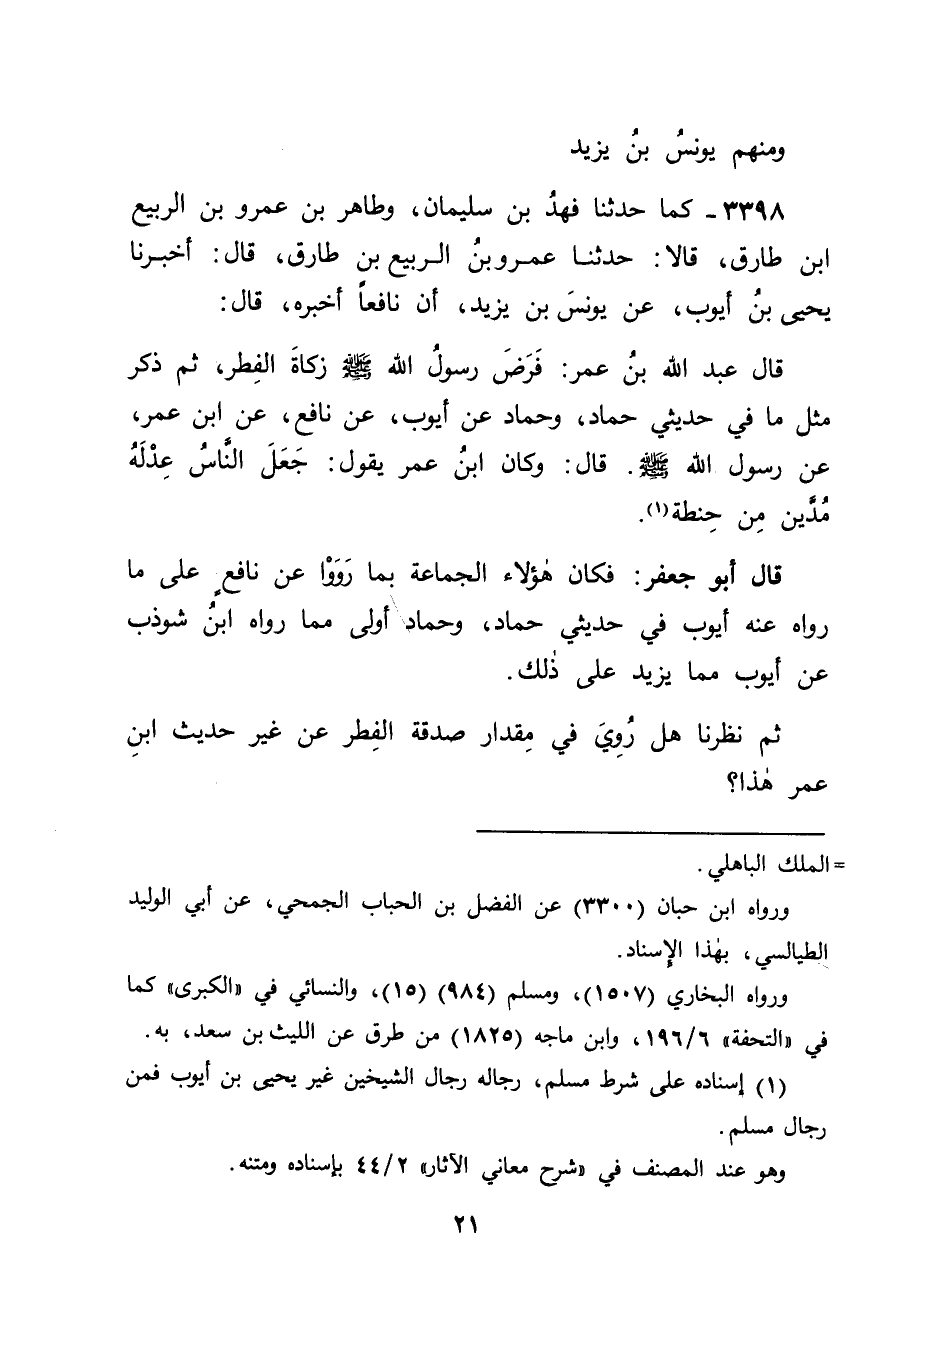 ومنهم يونسُ بنُ يزيد
٣٣٩٨ ـ كما حدثنا فهدُ بن سليمان، وطاهر بن عمرو بن الربيع
ابن طارق، قالا: حدثنا عمرو بنُ الربيع بن طارق، قال: أخبرنا
يحيى بنُ أيوب، عن يونسَ بن يزيد، أن نافعاً أخبره، قال:
قال عبد الله بنُ عمر: فَرَضَ رسولُ الله ﷺ زكاةَ الفِطر، ثم ذكر
مثل ما في حديثي حماد، وحماد عن أيوب، عن نافع، عن ابن عمر،
عن رسول الله ﷺ. قال: وكان ابنُ عمر يقول: جَعَلَ النَّاسُ عِدْلَهُ
مُدَّين مِن حِنطة(١).
قال أبو جعفر: فكان هٰؤلاء الجماعة بما رَوَوْا عن نافعٍ على ما
رواه عنه أيوب في حديثي حماد، وحماد أولى مما رواه ابنُ شوذب
عن أيوب مما يزيد على ذٰلك.
ثم نظرنا هل رُوِيَ في مِقدار صدقة الفِطر عن غير حديث ابنِ
عمر هٰذا؟
= الملك الباهلي.
ورواه ابن حبان (٣٣٠٠) عن الفضل بن الحباب الجمحي، عن أبي الوليد
الطيالسي، بهٰذا الإسناد.
ورواه البخاري (١٥٠٧)، ومسلم (٩٨٤) (١٥)، والنسائي في «الكبرى» كما
في «التحفة» ١٩٦/٦، وابن ماجه (١٨٢٥) من طرق عن الليث بن سعد، به.
(١) إسناده على شرط مسلم، رجاله رجال الشيخين غير يحيى بن أيوب فمن
رجال مسلم.
وهو عند المصنف في «شرح معاني الآثار» ٤٤/٢ بإسناده ومتنه.
٢١